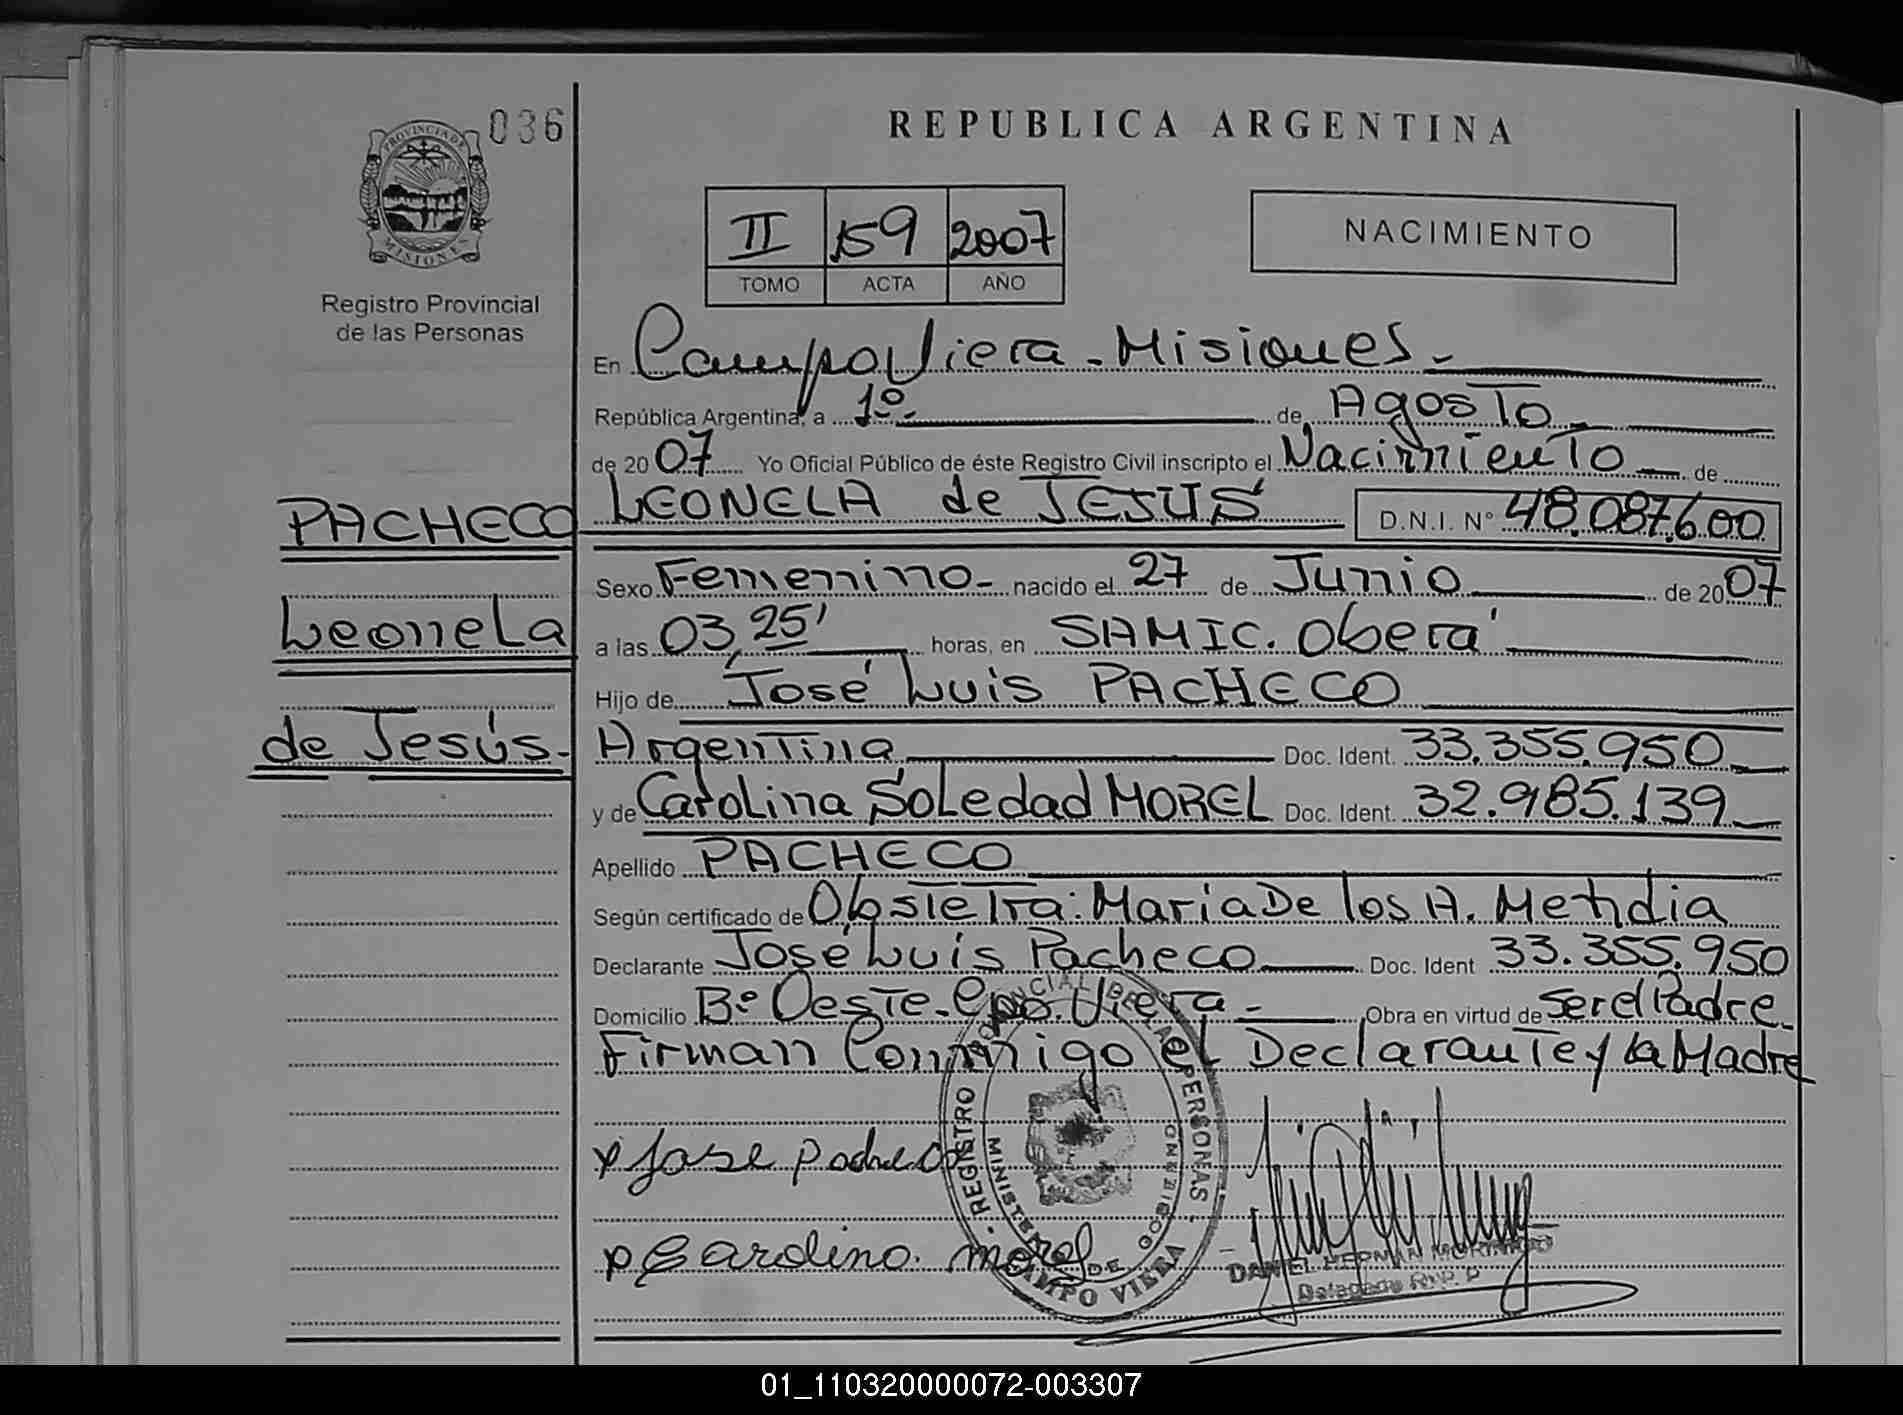 036
PROVINCIA DE
MISIONES
Registro Provincial
de las Personas
PACHECO
Leonela
de Jesús.-
REPUBLICA ARGENTINA
II 159 2007
TOMO ACTA AÑO
NACIMIENTO
En Campo Viera - Misiones.-
República Argentina, a 1º.- de Agosto
de 2007 Yo Oficial Público de éste Registro Civil inscripto el Nacimiento de
LEONELA de JESUS D.N.I. N° 48.087.600
Sexo Femenino- nacido el 27 de Junio de 2007
a las 03,25' horas, en SAMIC. Oberá
Hijo de José Luis PACHECO
Argentina Doc. Ident. 33.355.950
y de Carolina Soledad MOREL Doc. Ident. 32.985.139
Apellido PACHECO
Según certificado de Obstetra: Maria De los A.
Declarante José Luis Pacheco Doc. Ident 33.355.950
Domicilio Bº Oeste. Cpo. Viera - Obra en virtud de Ser el Padre.
Firman Conmigo el Declarante y la Madre
x Jose Pacheco
x Carolina morel
REGISTRO PROVINCIAL DE LAS PERSONAS
MINISTERIO DE GOBIERNO
CAMPO VIERA
DANIEL HERNAN
Delegado R.P.P
01_110320000072-003307